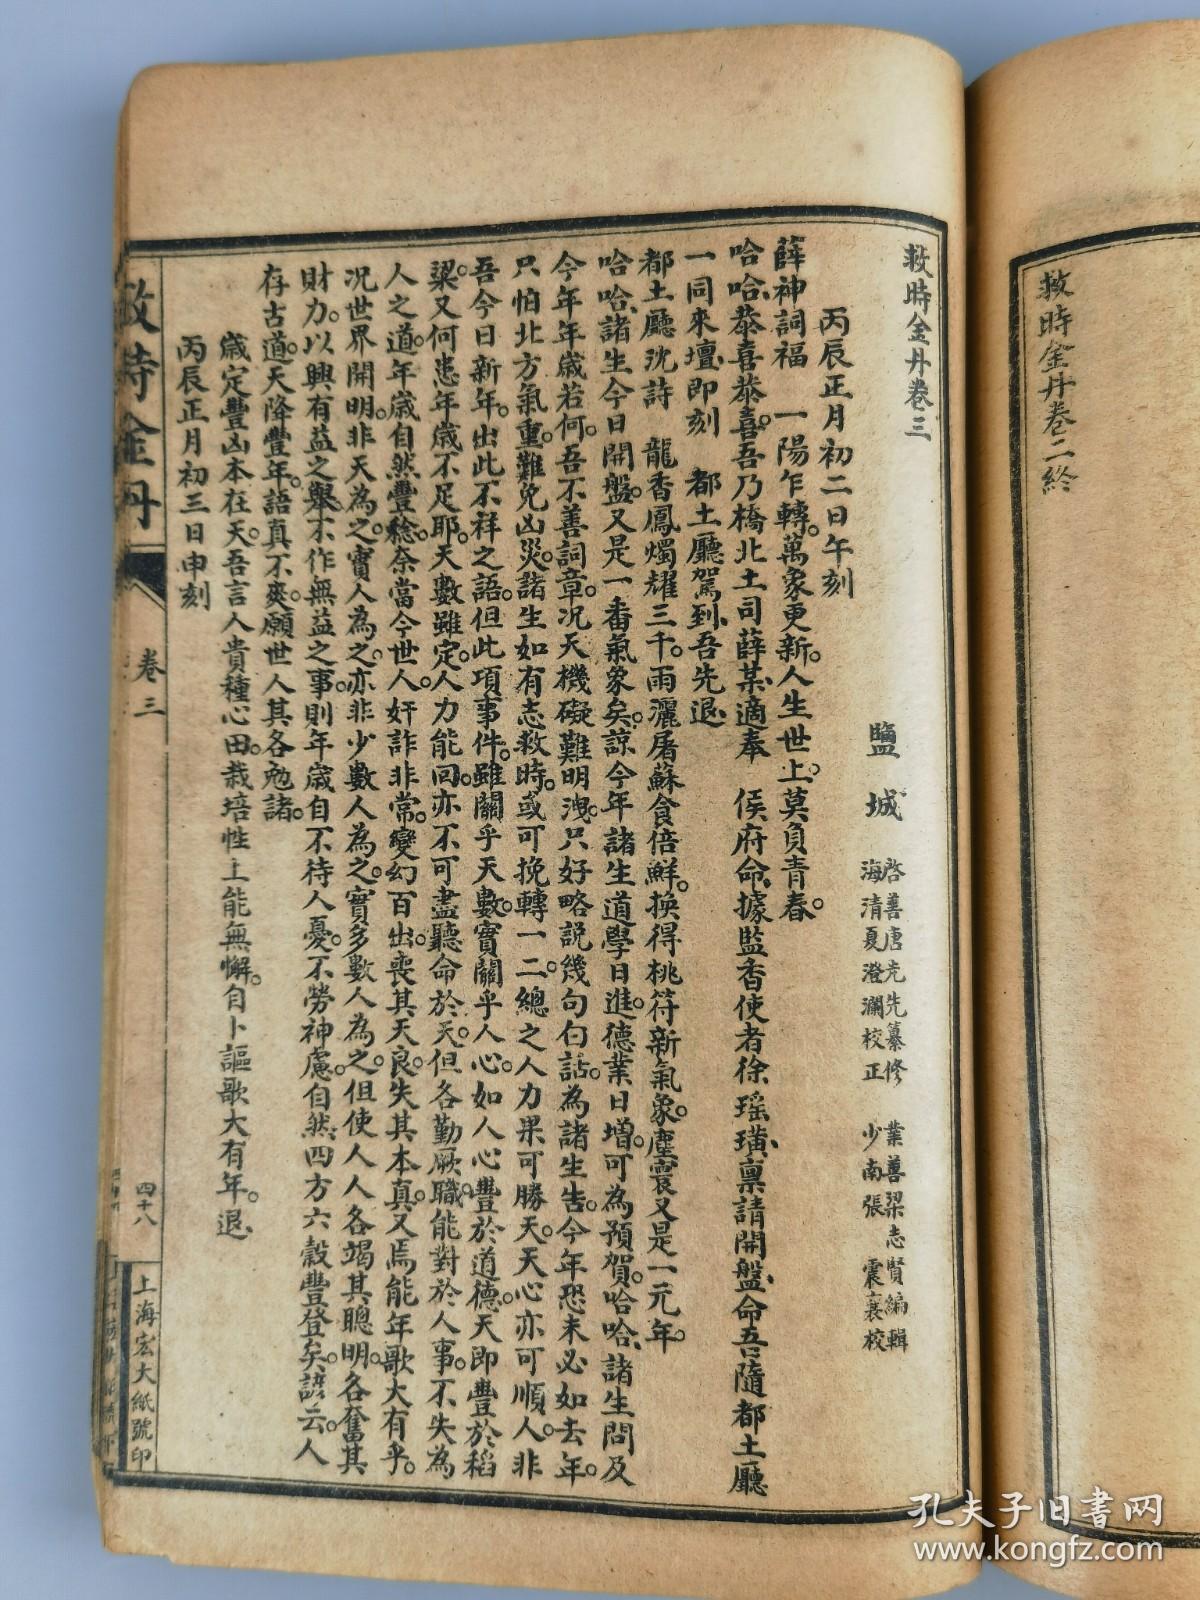 救時金丹卷二終
救時金丹卷三
鹽城
啓善唐尧先纂修　業善梁志賢編輯
海清夏澄瀾校正　少南張　震襄校
丙辰正月初二日午刻
薛神詞福　一陽乍轉。萬象更新。人生世上。莫負青春。
哈哈、恭喜恭喜。吾乃橋北土司薛某、適奉　侯府命、據監香使者徐瑶璜、稟請開盤、命吾隨都土廳
一同來壇、即刻　都土廳駕到、吾先退、
都土廳沈詩　龍香鳳燭耀三千。雨灑屠蘇食倍鮮。換得桃符新氣象。塵寰又是一元年。
哈哈、諸生、今日開盤。又是一番氣象矣。諒今年諸生道學日進。德業日增。可為預賀。哈哈、諸生問及
今年年歲若何。吾不善詞章。况天機礙難明洩。只好略説幾句白話。為諸生告。今年恐未必如去年。
只怕北方氣重。難免凶災。諸生如有志救時。或可挽轉一二。總之人力果可勝天。天心亦可順人。非
吾今日新年。出此不祥之語。但此項事件。雖關乎天數。實關乎人心。如人心豐於道德。天即豐於稻
粱。又何患年歲不足耶。天數雖定。人力能回。亦不可盡聽命於天。但各勤厥職。能對於人事。不失為
人之道。年歲自然豐稔。奈當今世人。奸詐非常。變幻百出。喪其天良。失其本真。又焉能年歌大有乎。
况世界開明。非天為之。實人為之。亦非少數人為之。實多數人為之。但使人人各竭其聰明。各奮其
財力。以興有益之舉。不作無益之事。則年歲自不待人憂。不勞神慮。自然四方六穀豐登矣。諺云。人
存古道。天降豐年。語真不爽。願世人其各勉諸。
歲定豐凶本在天。吾言人貴種心田。栽培性上能無懈。自卜謳歌大有年。退
丙辰正月初三日申刻
救時金丹
卷三
四十八
上海宏大紙號印
孔夫子旧书网
www.kongfz.com